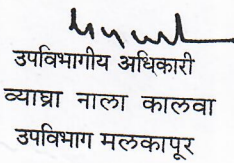 उपविभागीय अधिकारी
व्याघ्रा नाला कालवा
उपविभाग मलकापूर